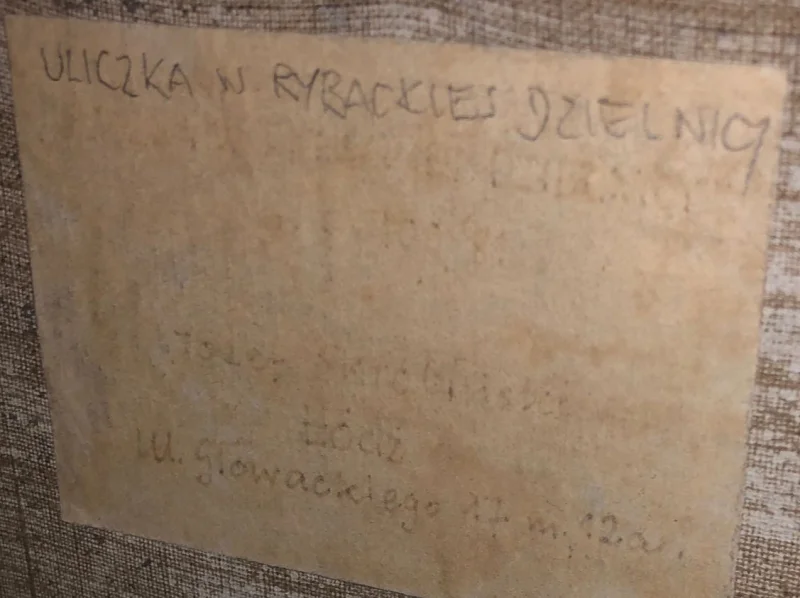 ULICZKA W RYBACKIEJ DZIELNICY
Józef Skrobiński
Łódź
ul. Głowackiego 17 m. 12a